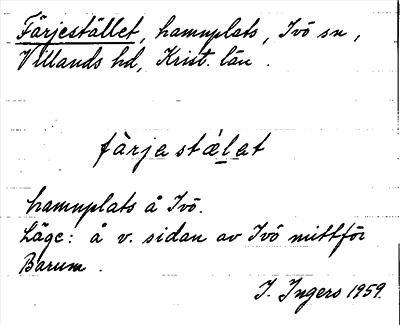 Färjestället, hamnplats, Ivö sn,
Villands hd, Krist. län.
fàrjastǽlat
hamnplats å Ivö.
Läge: å v. sidan av Ivö mittför
Barum.
I. Ingers 1959.